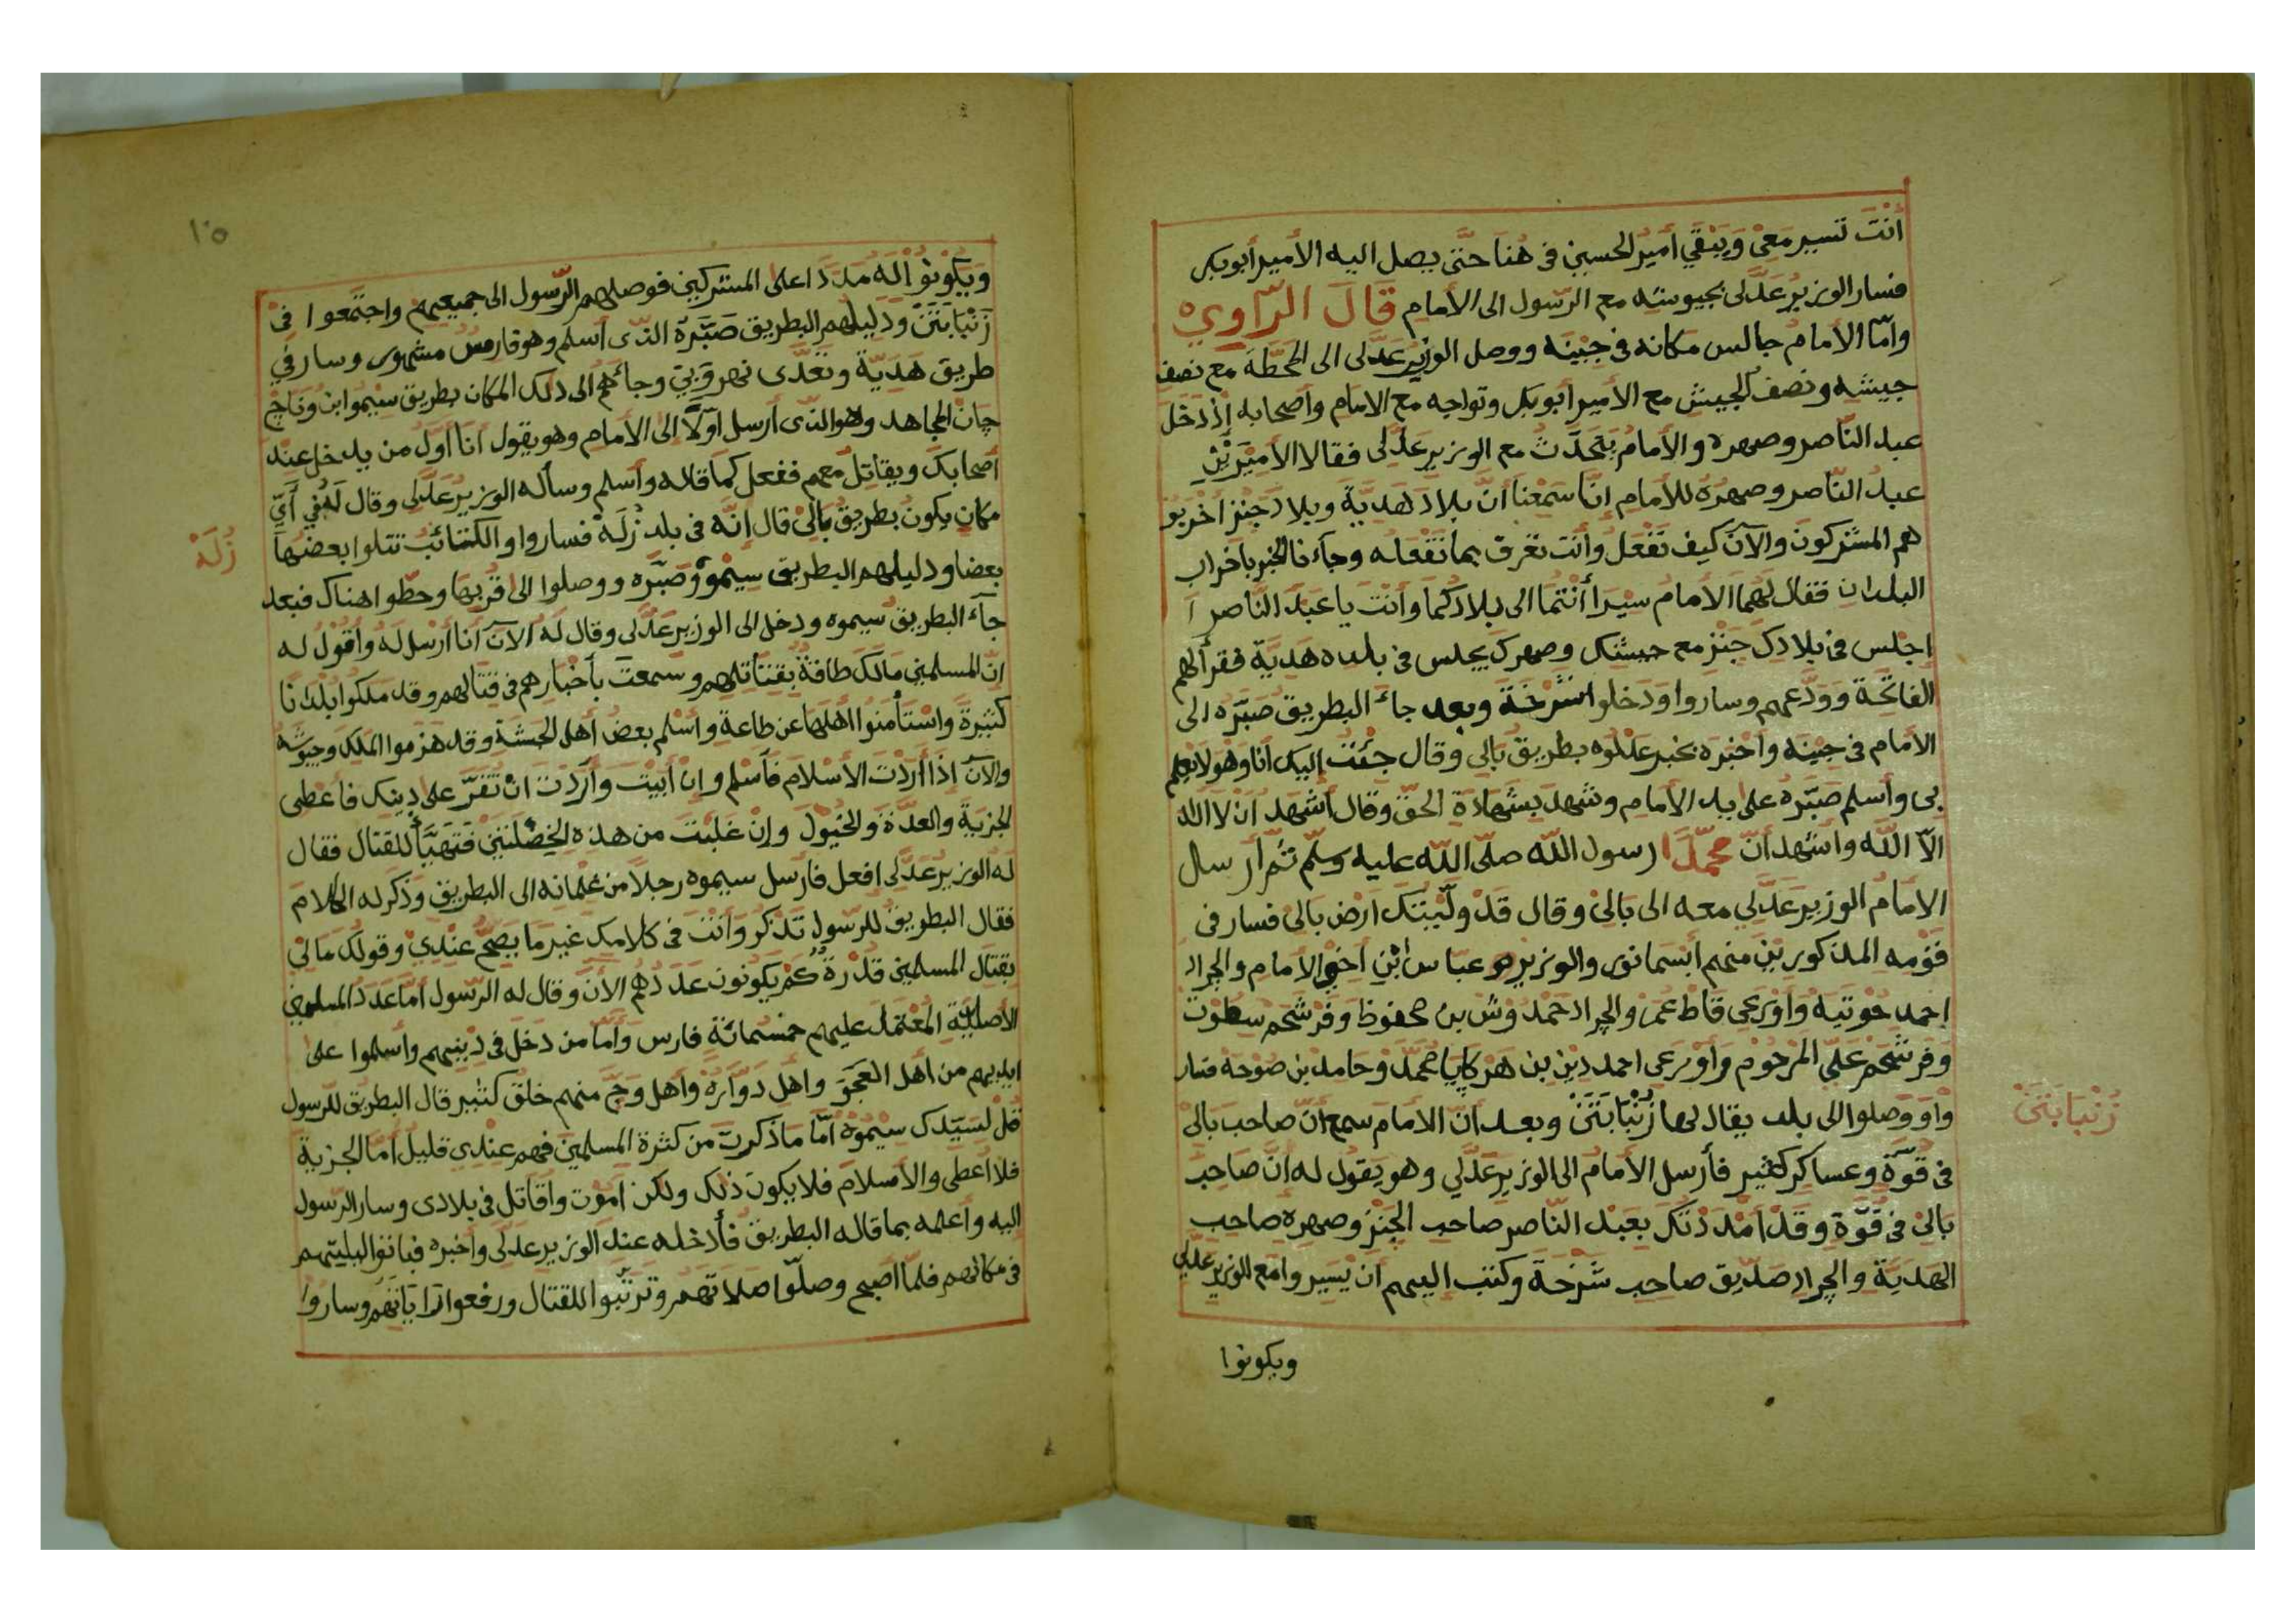 أنت تسير معى ويبقي أمير الحسين في هنا حتى يصل اليه الأمير أبوبكر
فسار الوزير عدلى بجيوشه مع الرسول الى الأمام قال الراوي
وامّا الأمام جالس مكانه في جبنه ووصل الوزير عدلى الى المحطة مع نصف
جيشه ونصف الجيش مع الأمير أبوبكر وتواجه مع الامام وأصحابه إذ دخل
عبد النّاصر وصهره والأمام يتحدّث مع الوزير عدلى فقالا الأميرين
عبد النّاصر وصهره للأمام انّا سمعنا أنّ بلاد هدية وبلاد جنز أخربو
هم المشركون والآن كيف تفعل وأنت تعرف بما نفعله وجاءنا الخبر باخراب
البلدان فقال لهما الأمام سيرا أنتما الى بلادكما وأنت يا عبد الناصر ا
إجلس في بلادك جنز مع جيشك وصهرك يجلس في بلده هدية فقرأ لهم
الفاتحة وودّعهم وساروا ودخلوا شرخة وبعد جاء البطريق صبّره الى
الامام في جبنه وأخبره بخبر عدلوه بطريق بالي وقال جئت إليك أنا وهو لا يعلم
بى وأسلم صبّره على يد الأمام وشهد بشهادة الحق وقال أشهد ان لا اله
الاّ الله واشهد أنّ محمّدا رسول الله صلّى الله عليه وسلّم ثمّ أرسال
الأمام الوزير عدلي معه الى بالى وقال قد ولّيتك ارض بالى فسار في
قومه المذكورين منهم ابسمانور والوزير عباس ابن اخو الأمام والجراد
احمد جوتيه وأورعى قاط عمر والجراد حمدوش بن محفوظ وفرشحم سطوت
وفرشحم علي المرحوم وأورعى احمد دين بن هركايا محمد وحامد بن صوحه فسار
واو ووصلوا الى بلد يقال لها زنبابتن وبعد انّ الامام سمع انّ صاحب بالى
زنبابتن
في قوّة وعساكر كثير فأرسل الأمام الى الوزير عدلي وهو يقول له انّ صاحب
بالى في قوّة وقد امددتك بعبد النّاصر صاحب الجنز وصهره صاحب
الهدية والجراد صديق صاحب شرخة وكتب اليهم ان يسيروا مع الوزير عدلي
ويكونوا
١٠٥
ويكونوا له مددا على المشركين فوصلهم الرّسول الى جميعهم واجتمعوا في
زنبابتن ودليلهم البطريق صبّره الذى أسلم وهو فارس مشهور وسار في
طريق هدية وتعدّى نهر وبي وجاءهم الى ذلك المكان بطريق سيموا بن وناج
جان المجاهد وهو الذى أرسل أوّلا إلى الأمام وهو يقول أنا أول من يدخل عند
أصحابك ويقاتل معهم ففعل كما قاله وأسلم وسأله الوزير عدلى وقال له في أيّ
مكان يكون بطريق بالى قال إنّه في بلد زلة فساروا والكتائب تتلوا بعضها
زلة
بعضا ودليلهم البطريق سيمو وصبّره ووصلوا الى قربها وحطّوا هناك فبعد
جاء البطريق سيموه ودخل الى الوزير عدلى وقال له الآن أنا أرسل له وأقول له
انّ المسلمين مالك طاقة بقتالهم وسمعت بأخبارهم في قتالهم وقد ملكوا بلدنا
كثيرة واستأمنوا اهلها عن طاعة وأسلم بعض أهل الحبشة وقد هزموا الملك وجيوشه
والآن إذا أردت الأسلام فأسلم وان أبيت وأردت ان تقرّ على دينك فأعطى
الجزية والعدّة والخيول وإن غلبت من هذه الخصلتين فتهيّأ للقتال فقال
له الوزير عدلى افعل فأرسل سيموه رجلا من غلمانه الى البطريق وذكر له الكلام
فقال البطريق للرسول تذكر وانت في كلامك غير ما يصحّ عندي وقولك ما لي
بقتال المسلمين قدرة كم يكونون عددهم الأن وقال له الرّسول أمّا عدد المسلمين
الأصليّة المعتمد عليهم خمسمائة فارس وأمّا من دخل في دينهم وأسلموا على
ايديهم من أهل العجو وأهل دواره وأهل وج منهم خلق كثير قال البطريق للرسول
قل لسيّدك سيموه أمّا ما ذكرت من كثرة المسلمين فهم عندي قليل أما الجزية
فلا اعطى والأسلام فلا يكون ذلك ولكن اموت وأقاتل في بلادى وسار الرّسول
اليه وأعلمه بما قاله البطريق فأدخله عند الوزير عدلى وأخبره فباتوا ليلتهم
في مكانهم فلمّا اصبح وصلّوا صلاتهم وترتّبوا للقتال ورفعوا راياتهم وساروا